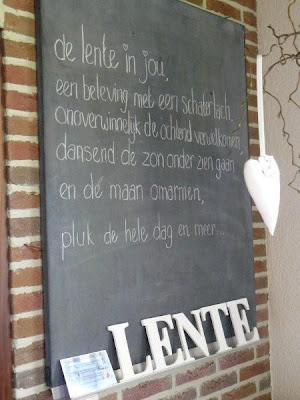 de lente in jou,
een beleving met een schaterlach,
onoverwinnelijk de ochtend verwelkomen,
dansend de zon onder zien gaan
en de maan omarmen,
pluk de hele dag en meer...
LENTE